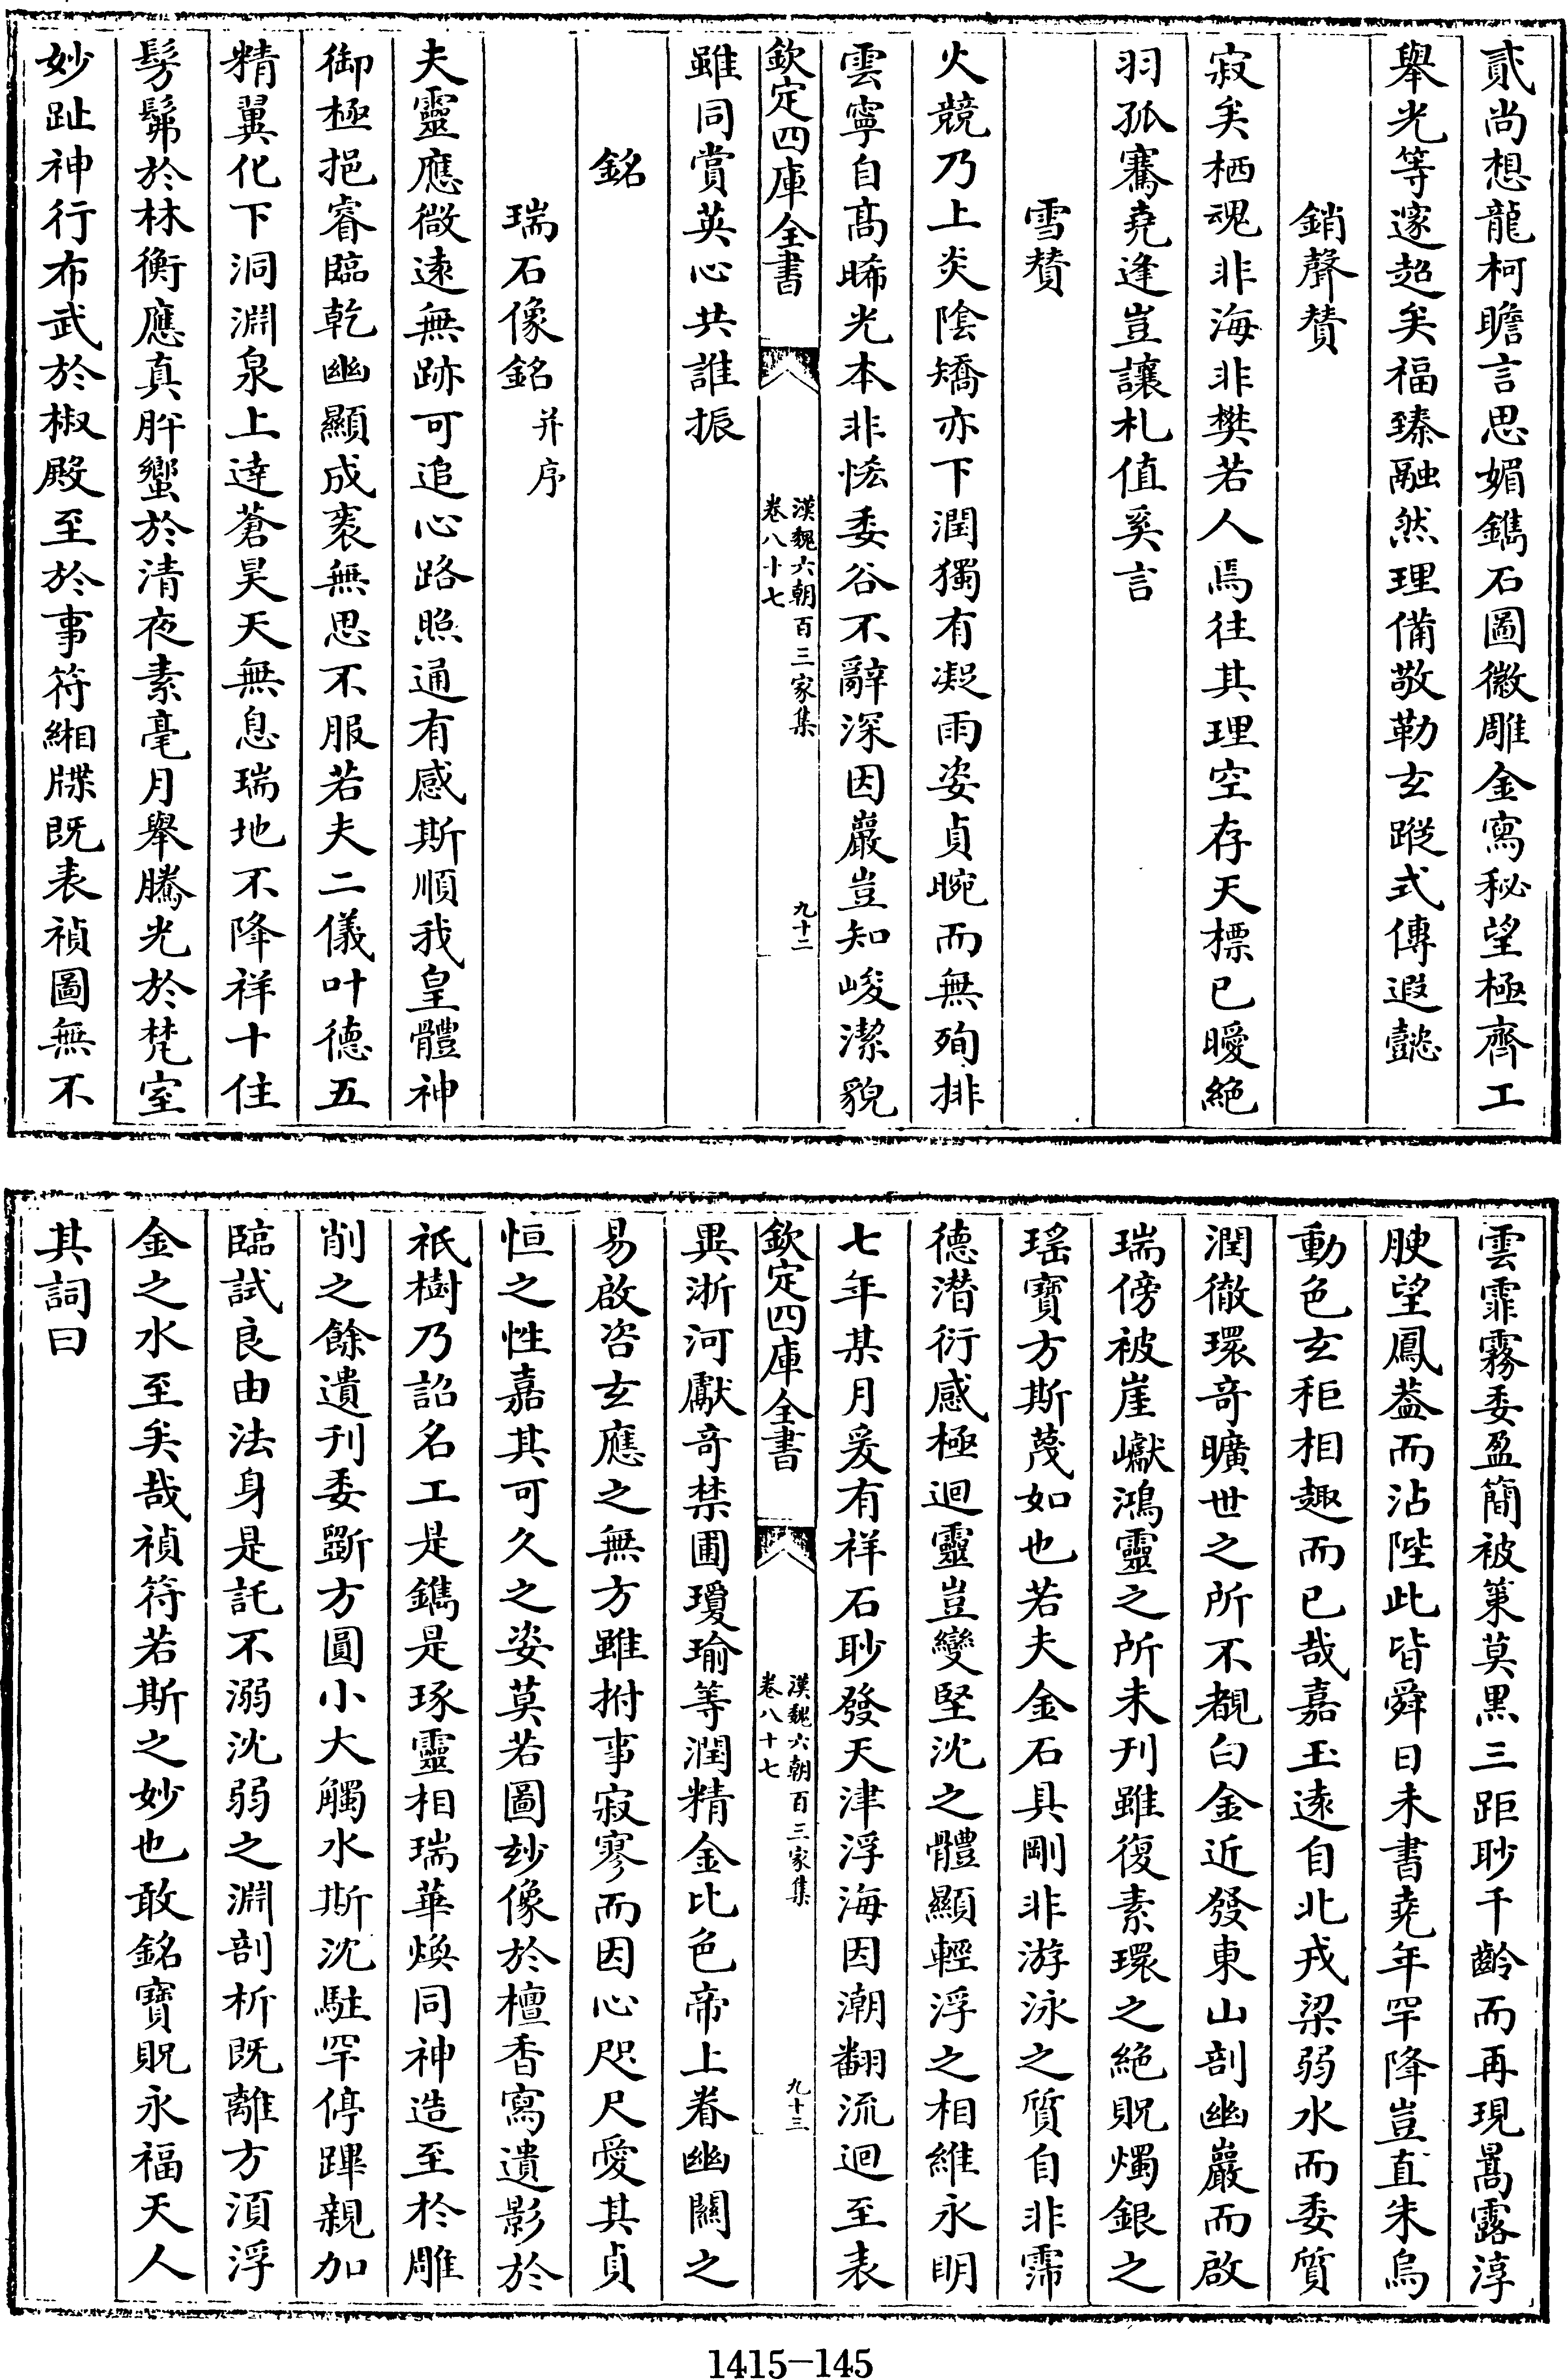 貳尚想龍柯瞻言思媚鐫石圖徽雕金寫秘望極齊工
舉光等邃超矣福臻融然理備敬勒玄蹤式傳遐懿
銷聲贊
寂矣栖魂非海非樊若人焉往其理空存天標已曖絕
羽孤騫堯逢豈讓札值奚言
雪贊
火競乃上炎陰矯亦下潤獨有凝雨姿貞晼而無殉排
雲寧自高晞光本非恡委谷不辭深因巖豈知峻潔貌
欽定四庫全書
漢魏六朝百三家集
卷八十七
九十二
雖同賞英心共誰振
銘
瑞石像銘并序
夫靈應微遠無跡可追心路照通有感斯順我皇體神
御極挹睿臨乾幽顯成裘無思不服若夫二儀叶德五
精翼化下洞淵泉上達蒼昊天無息瑞地不降祥十住
髣髴於林衡應真肸蠁於清夜素毫月舉騰光於梵室
妙趾神行布武於椒殿至於事符緗牒既表禎圖無不
雲霏霧委盈簡被策莫黑三距眇千齡而再現暠露淳
腴望鳳葢而沾陛此皆舜日未書堯年罕降豈直朱烏
動色玄秬相趣而已哉嘉玉遠自北戎梁弱水而委質
潤徹環奇曠世之所不覩白金近發東山剖幽巖而啟
瑞傍被崖巘鴻靈之所未刊雖復素環之絕貺燭銀之
瑤寶方斯蔑如也若夫金石具剛非游泳之質自非霈
德潛衍感極迴靈豈變堅沈之體顯輕浮之相維永明
七年某月爰有祥石眇發天津浮海因潮翻流迴至表
欽定四庫全書
漢魏六朝百三家集
卷八十七
九十三
異浙河獻奇禁圃瓊瑜等潤精金比色帝上眷幽關之
易啟咨玄應之無方雖拊事寂寥而因心咫尺愛其貞
恒之性嘉其可久之姿莫若圖玅像於檀香寫遺影於
祇樹乃詔名工是鐫是琢靈相瑞華煥同神造至於雕
削之餘遺刊委斲方圓小大觸水斯沈駐罕停蹕親加
臨試良由法身是託不溺沈弱之淵剖析既離方湏浮
金之水至矣哉禎符若斯之妙也敢銘寶貺永福天人
其詞曰
1415-145